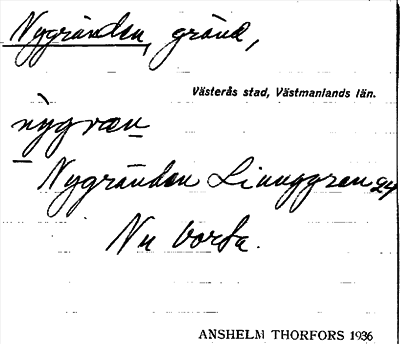 Nygränden, gränd,
Västerås stad, Västmanlands län.
nỳgræn
Nygränden Ljunggren 24
Nu borta.
ANSHELM THORFORS 1936